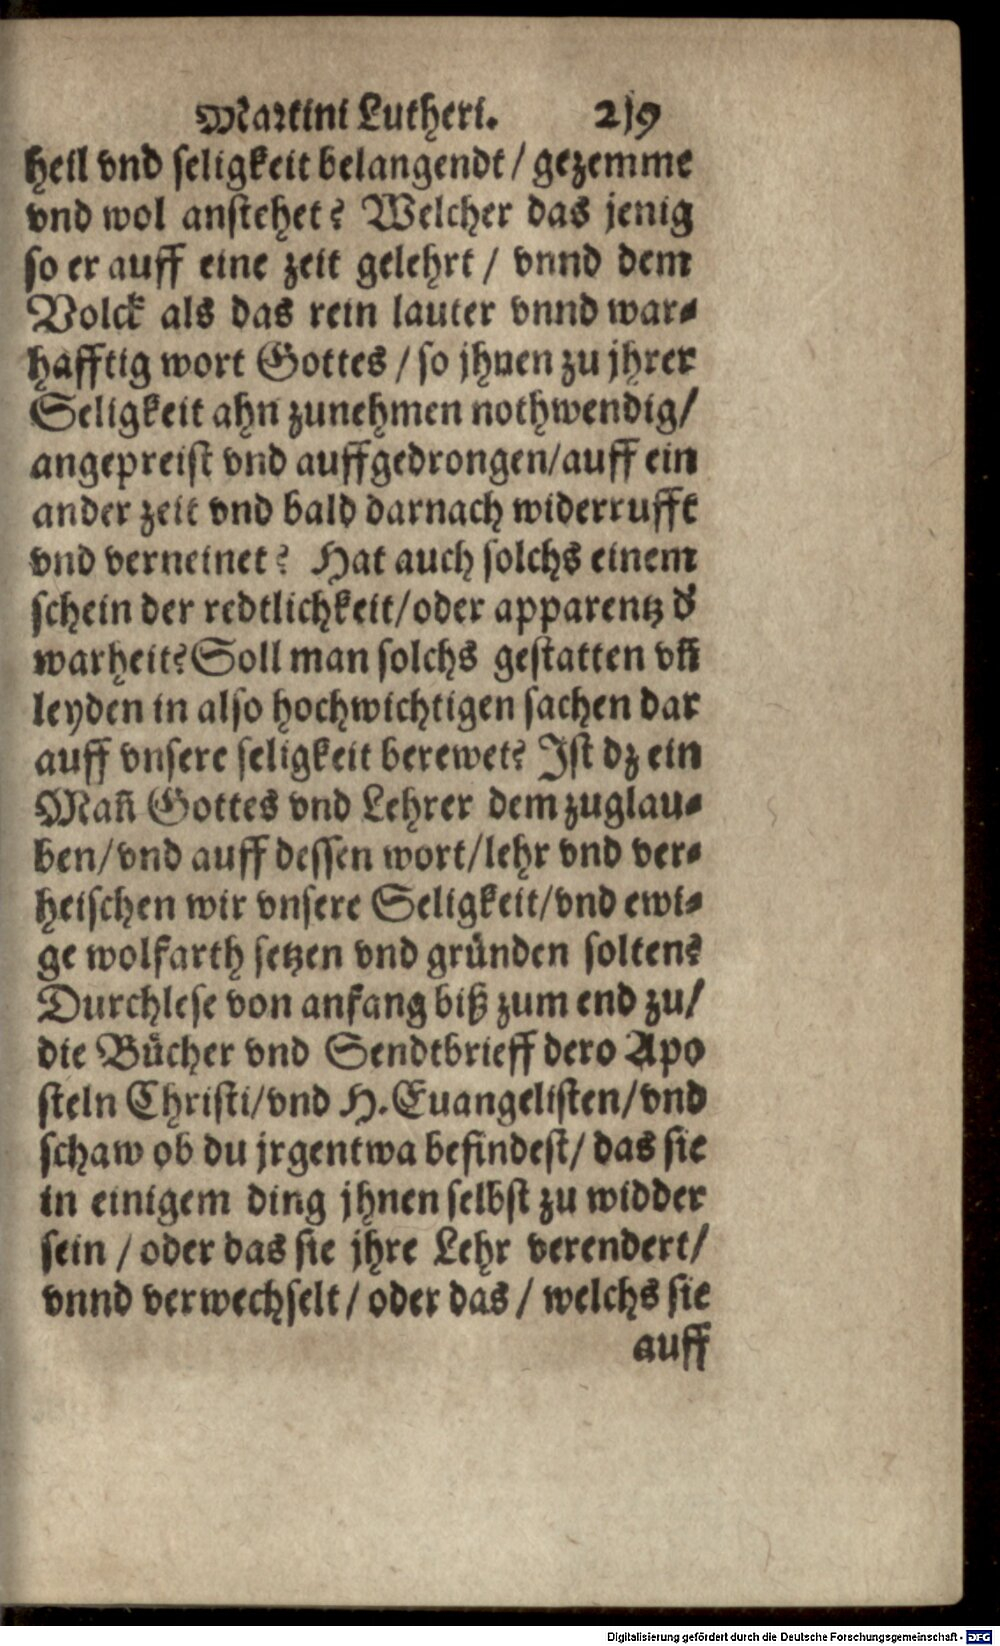 Martini Lutheri. 219
heil vnd seligkeit belangendt / gezemme
vnd wol anstehet? Welcher das jenig
so er auff eine zeit gelehrt / vnnd dem
Volck als das rein lauter vnnd war-
hafftig wort Gottes / so jhnen zu jhrer
Seligkeit ahn zunehmen nothwendig /
angepreist vnd auffgedrongen / auff ein
ander zeit vnd bald darnach widerrufft
vnd verneinet? Hat auch solchs einem
schein der redtlichkeit / oder apparentz d̛
warheit? Soll man solchs gestatten vn̄
leyden in also hochwichtigen sachen dar
auff vnsere seligkeit berewet? Ist dz ein
Man̄ Gottes vnd Lehrer dem zuglau-
ben / vnd auff dessen wort / lehr vnd ver-
heischen wir vnsere Seligkeit / vnd ewi-
ge wolfarth setzen vnd gründen solten?
Durchlese von anfang biß zum end zu /
die Bücher vnd Sendtbrieff dero Apo
steln Christi / vnd H. Euangelisten / vnd
schaw ob du jrgentwa befindest / das sie
in einigem ding jhnen selbst zu widder
sein / oder das sie jhre Lehr verendert /
vnnd verwechselt / oder das / welchs sie
auff
Digitalisierung gefördert durch die Deutsche Forschungsgemeinschaft - DFG